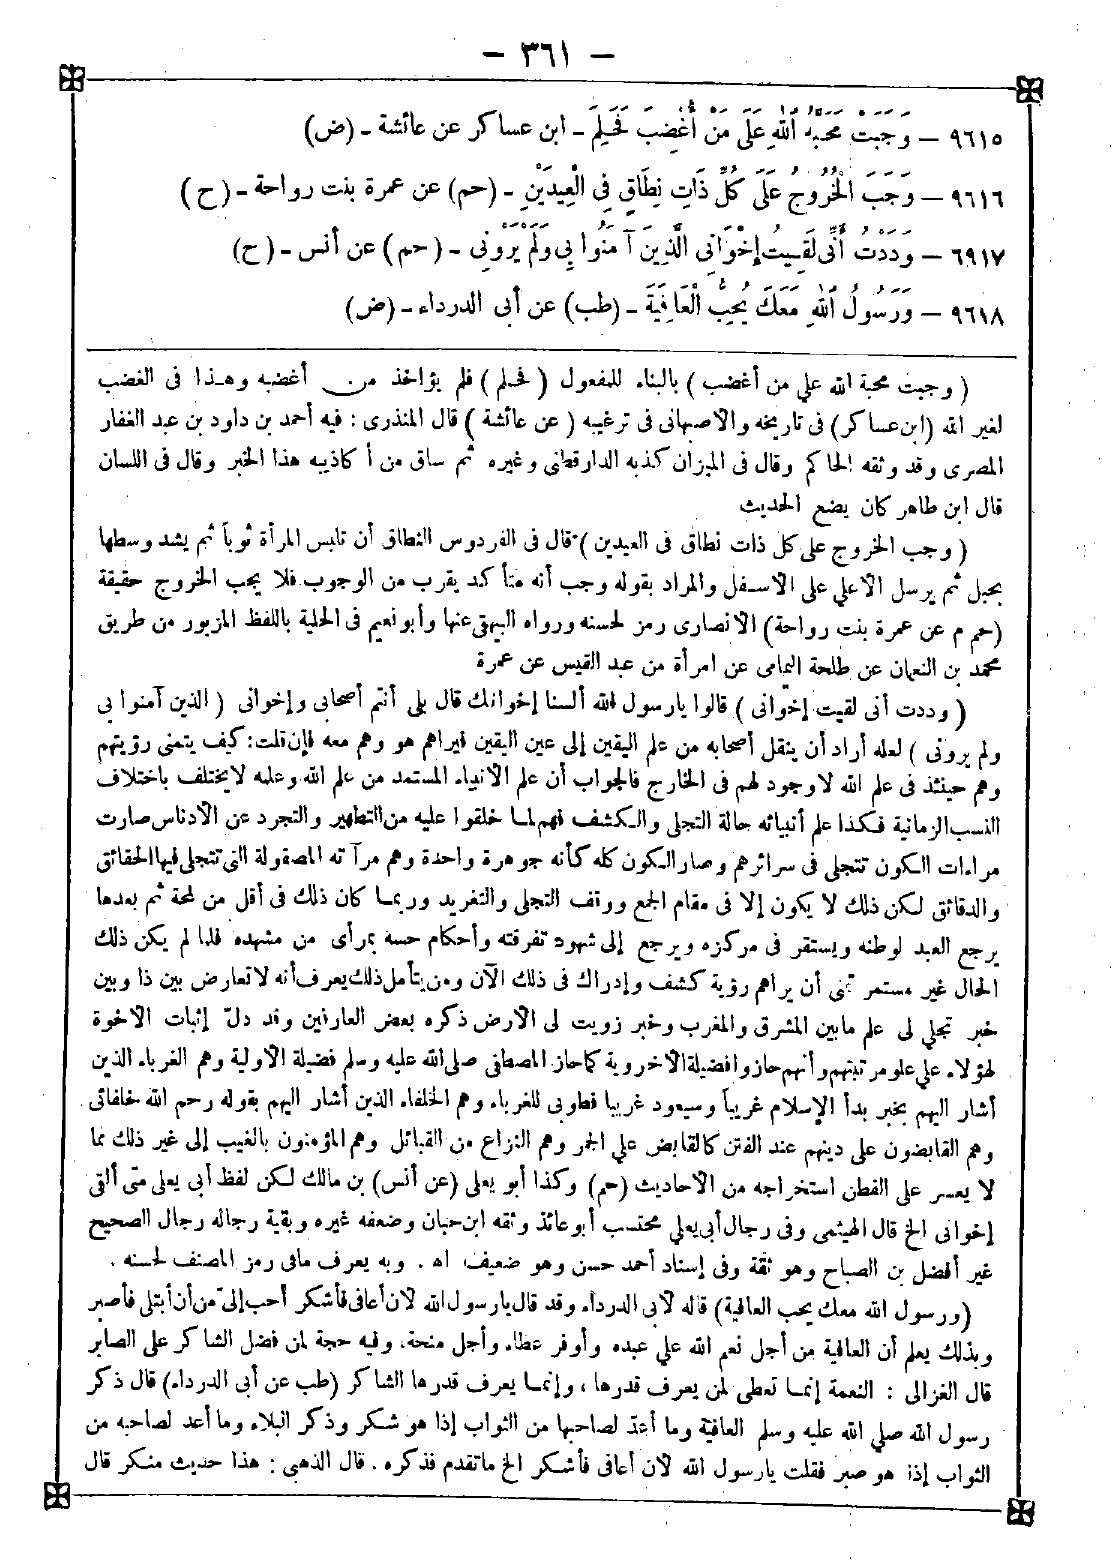 — ٣٦١ —
٩٦١٥ — وَجَبَتْ مَحَبَّةُ اللهِ عَلَى مَنْ أُغْضِبَ فَحَلِمَ – ابن عساكر عن عائشة – (ض)
٩٦١٦ — وَجَبَ الْخُرُوجُ عَلَى كُلِّ ذَاتِ نِطَاقٍ فِي الْعِيدَيْنِ – (حم) عن عمرة بنت رواحة – (ح)
٦٩١٧ — وَدِدْتُ أَنِّي لَقِيتُ إِخْوَانِي الَّذِينَ آمَنُوا بِي وَلَمْ يَرَوْنِي – (حم) عن أنس – (ح)
٩٦١٨ — وَرَسُولُ اللهِ مَعَكَ يُحِبُّ الْعَافِيَةَ – (طب) عن أبي الدرداء – (ض)
(وجبت محبة الله على من أغضب) بالبناء للمفعول (فحلم) فلم يؤاخذ من أغضبه وهذا فى الغضب
لغير الله (ابن عساكر) فى تاريخه والاصبهانى فى ترغيبه (عن عائشة) قال المنذرى : فيه أحمد بن داود بن عبد الغفار
المصرى وقد وثقه الحاكم وقال فى الميزان كذبه الدارقطنى وغيره ثم ساق من أكاذيبه هذا الخبر وقال فى اللسان
قال ابن طاهر كان يضع الحديث
(وجب الخروج على كل ذات نطاق فى العيدين) قال فى الفردوس النطاق أن تلبس المرأة ثوباً ثم يشد وسطها
بحبل ثم يرسل الأعلى على الأسفل والمراد بقوله وجب أنه متأكد يقرب من الوجوب فلا يجب الخروج حقيقة
(حم م عن عمرة بنت رواحة) الانصارى رمز لحسنه ورواه البيهقى عنها وأبو نعيم فى الحلية باللفظ المزبور من طريق
محمد بن النعمان عن طلحة اليمامى عن امرأة من عبد القيس عن عمرة
(وددت أنى لقيت إخوانى) قالوا يارسول الله ألسنا إخوانك قال بلى أنتم أصحابى وإخوانى (الذين آمنوا بى
ولم يرونى) لعله أراد أن ينقل أصحابه من علم اليقين إلى عين اليقين فيراهم هو وهم معه فإن قلت: كيف يتمنى رؤيتهم
وهم حينئذ فى علم الله لا وجود لهم فى الخارج فالجواب أن علم الأنبياء المستمد من علم الله وعلمه لا يختلف باختلاف
النسب الزمانية فكذا علم أنبيائه حالة التجلى والكشف فهم لما خلقوا عليه من التطهير والتجرد عن الأدناس صارت
مراءات الكون تتجلى فى سرائرهم وصار الكون كله كأنه جوهرة واحدة وهم مرآته المصقولة التى تتجلى فيها الحقائق
والدقائق لكن ذلك لا يكون إلا فى مقام الجمع ووقف التجلى والتغريد وربما كان ذلك فى أقل من لمحة ثم بعدها
يرجع العبد لوطنه ويستقر فى مركزه ويرجع إلى شهود تفرقته وأحكام حسه بمرأى من مشهده فلما لم يكن ذلك
الحال غير مستمر تمنى أن يراهم رؤية كشف وإدراك فى ذلك الآن ومن يتأمل ذلك يعرف أنه لا تعارض بين ذا وبين
خبر تجلى لى علم ما بين المشرق والمغرب وخبر زويت لى الأرض ذكره بعض العارفين وقد دلّ إثبات الاخوة
لهؤلاء على علو مرتبتهم وأنهم حازوا فضيلة الأخروية كما حاز المصطفى صلى الله عليه وسلم فضيلة الأولية وهم الغرباء الذين
أشار اليهم بخبر بدأ الإسلام غريباً وسيعود غريبا فطوبى للغرباء وهم الخلفاء الذين أشار اليهم بقوله رحم الله خلفائى
وهم القابضون على دينهم عند الفتن كالقابض على الجمر وهم النزاع من القبائل وهم المؤمنون بالغيب إلى غير ذلك مما
لا يعسر على الفطن استخراجه من الأحاديث (حم) وكذا أبو يعلى (عن أنس) بن مالك لكن لفظ أبى يعلى متى ألقى
إخوانى الخ قال الهيثمى وفى رجال أبى يعلى محتسب أبو عائذ وثقه ابن حبان وضعفه غيره وبقية رجاله رجال الصحيح
غير أفضل بن الصباح وهو ثقة وفى إسناد أحمد حسن وهو ضعيف اه . وبه يعرف مافى رمز المصنف لحسنه .
(ورسول الله معك يحب العافية) قاله لأبى الدرداء وقد قال يارسول الله لأن أعافى فأشكر أحب إلىّ من أن أبتلى فأصبر
وبذلك يعلم أن العافية من أجل نعم الله على عبده وأوفر عطاء وأجل منحة، وفيه حجة لمن فضل الشاكر على الصابر
قال الغزالى : النعمة إنما تعطى لمن يعرف قدرها، وإنما يعرف قدرها الشاكر (طب عن أبى الدرداء) قال ذكر
رسول الله صلى الله عليه وسلم العافية وما أعدّ لصاحبها من الثواب إذا هو شكر وذكر البلاء وما أعد لصاحبه من
الثواب إذا هو صبر فقلت يارسول الله لأن أعافى فأشكر الخ ماتقدم فذكره . قال الذهبى : هذا حديث منكر قال